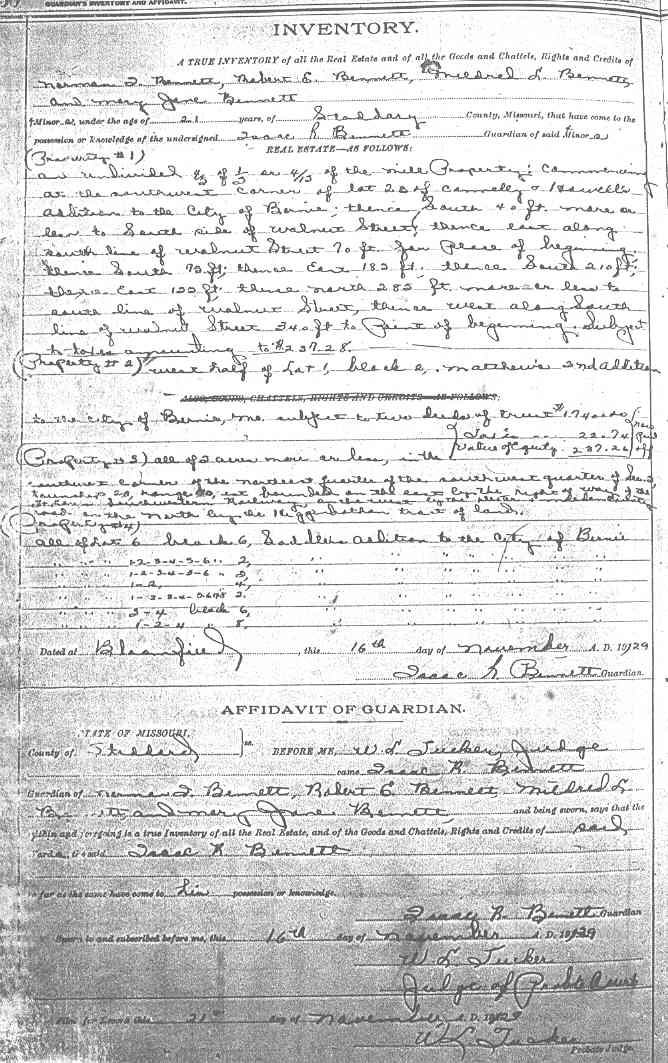 GUARDIAN'S INVENTORY AND AFFIDAVIT.
INVENTORY.
A TRUE INVENTORY of all the Real Estate and of all the Goods and Chattels, Rights and Credits of
Norman J. Bennett, Robert E. Bennett, Mildred L. Bennett,
and Mary Jane Bennett
Minors, under the age of 21 years, of Stoddard County, Missouri, that have come to the
possession or knowledge of the undersigned Isaac R Bennett Guardian of said Minors
REAL ESTATE—AS FOLLOWS:
(Property #1)
an undivided of 1/3 or of the mill Property: Commencing
at the southwest corner of lot 20 of Connelly &
addition to the City of Bernie; thence South 40 ft. more or
less to South side of Walnut Street, thence east along
south line of Walnut Street 70 ft. for Place of beginning,
thence South 72 ft; thence East 182 ft, thence South 210 ft;
thence East 122 ft, thence north 282 ft. more or less to
south line of Walnut Street, thence west along South
line of Walnut Street 340 ft to Point of beginning. Subject
to taxes amounting to $237.28.
(Property #2) west half of Lot 1, block 2, Matthew's 2nd addition
ALSO, GOODS, CHATTELS, RIGHTS AND CREDITS—AS FOLLOWS:
to the city of Bernie, Mo. subject to two deeds of trust
Taxes 22.74
Value of Equity 237.26
(Property #3) all of 2 acres more or less, in the
southwest corner of the northeast quarter of the southwest quarter of Sec.
township 20, range bounded on the east by the right of way of the
Railway, on the west by the
on the North by the Higginbotham tract of land.
(Property #4)
All of Lot 6 block 6, Saddlers addition to the City of Bernie
" " " 1-2-3-4-5-6 " 2, " " " "
" " " 1-2-3-4-5-6 " 3, " " " "
" " " 1-2, " 4, " " " "
" " " 1-2-3-4-5-6 " 2. " " " "
" " " 3-4 block 6, " " " "
" " " 1-2-4 " 8, " " " "
Dated at Bloomfield, this 16th day of November A. D. 1929
Isaac R Bennett Guardian.
AFFIDAVIT OF GUARDIAN.
STATE OF MISSOURI,
County of Stoddard ss. BEFORE ME, W L Tucker, Judge
came Isaac R. Bennett
Guardian of Norman J. Bennett, Robert E Bennett, Mildred L
Bennett and Mary Jane Bennett, and being sworn, says that the
within and foregoing is a true Inventory of all the Real Estate, and of the Goods and Chattels, Rights and Credits of said
wards, to said Isaac R Bennett
so far as the same have come to him possession or knowledge.
Isaac R. Bennett Guardian
Sworn to and subscribed before me, this 16th day of November A. D. 1929
W L Tucker
Judge of Probate Court
Filed for Record this 21st day of November A. D. 1929
W L Tucker
Probate Judge.